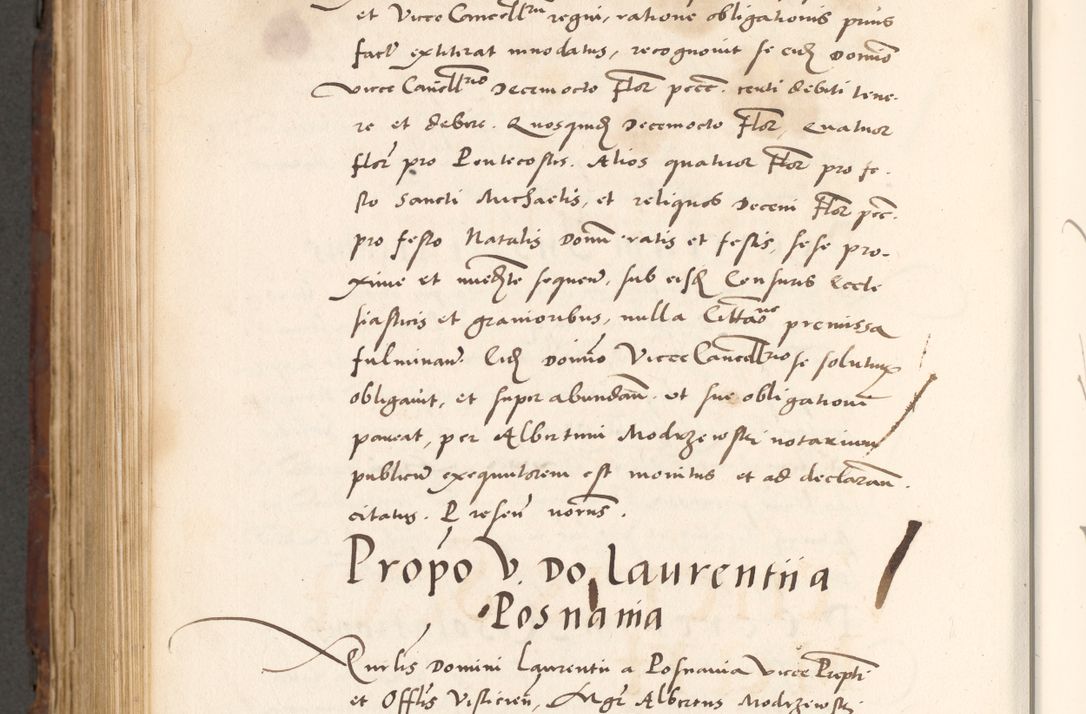 et Vice Cancell̄rm regni, ratione obligationis prius
fact̄ extiterat innodatus, recognovit se eidꝫ Domino
Vice Cancell̄rio Decemocto Flor pecc. centi debiti tene-
re et debere. Quosquidꝫ Decemocto Flor, Quatuor
flor pro Pentecostes. Alios quatuor Flor pro fe-
sto Sancti Michaelis, et reliquos Decem Flor pecc.
pro festo Natalis Domi eratis et festis, sese pro-
xime et imediate sequen̄, sub eisdꝫ Censuris Eccle
siasticis et gravioribus, nulla Citta͠one premissa
fulminan̄. Eidꝫ Domino Vice Cancell̄rio se soluturꝫ
obligavit, et super abundan̄. ut sue obligationi
pareat, per Albertum Modrzewski notarium
publicū exequutorem est monitus et ad declaran̄.
citatus. Presen̄ norūs.
Propo V. Do Laurentii a
Posnania
Qurlis Domini Laurentii a Posnania Vice Prepti
et Offlis Visticien̄, Mgr̄ Albertus Modrzewski